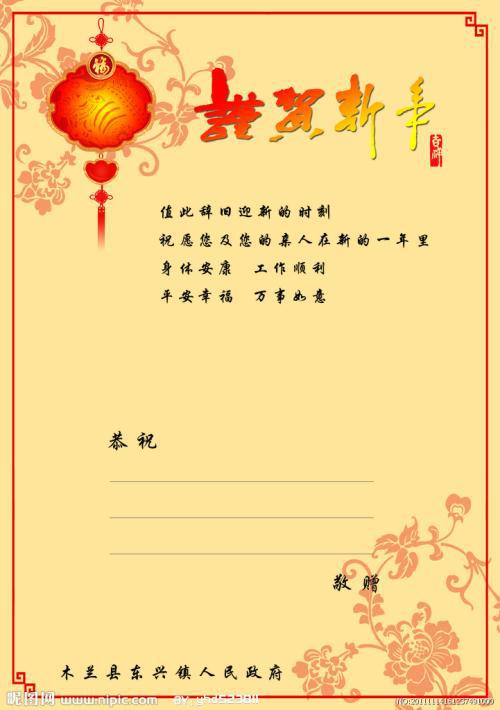 福
謹贺新年
吉祥
值此辞旧迎新的时刻
祝愿您及您的亲人在新的一年里
身体安康　工作顺利
平安幸福　万事如意
恭祝
敬赠
木兰县东兴镇人民政府
昵图网 www.nipic.com